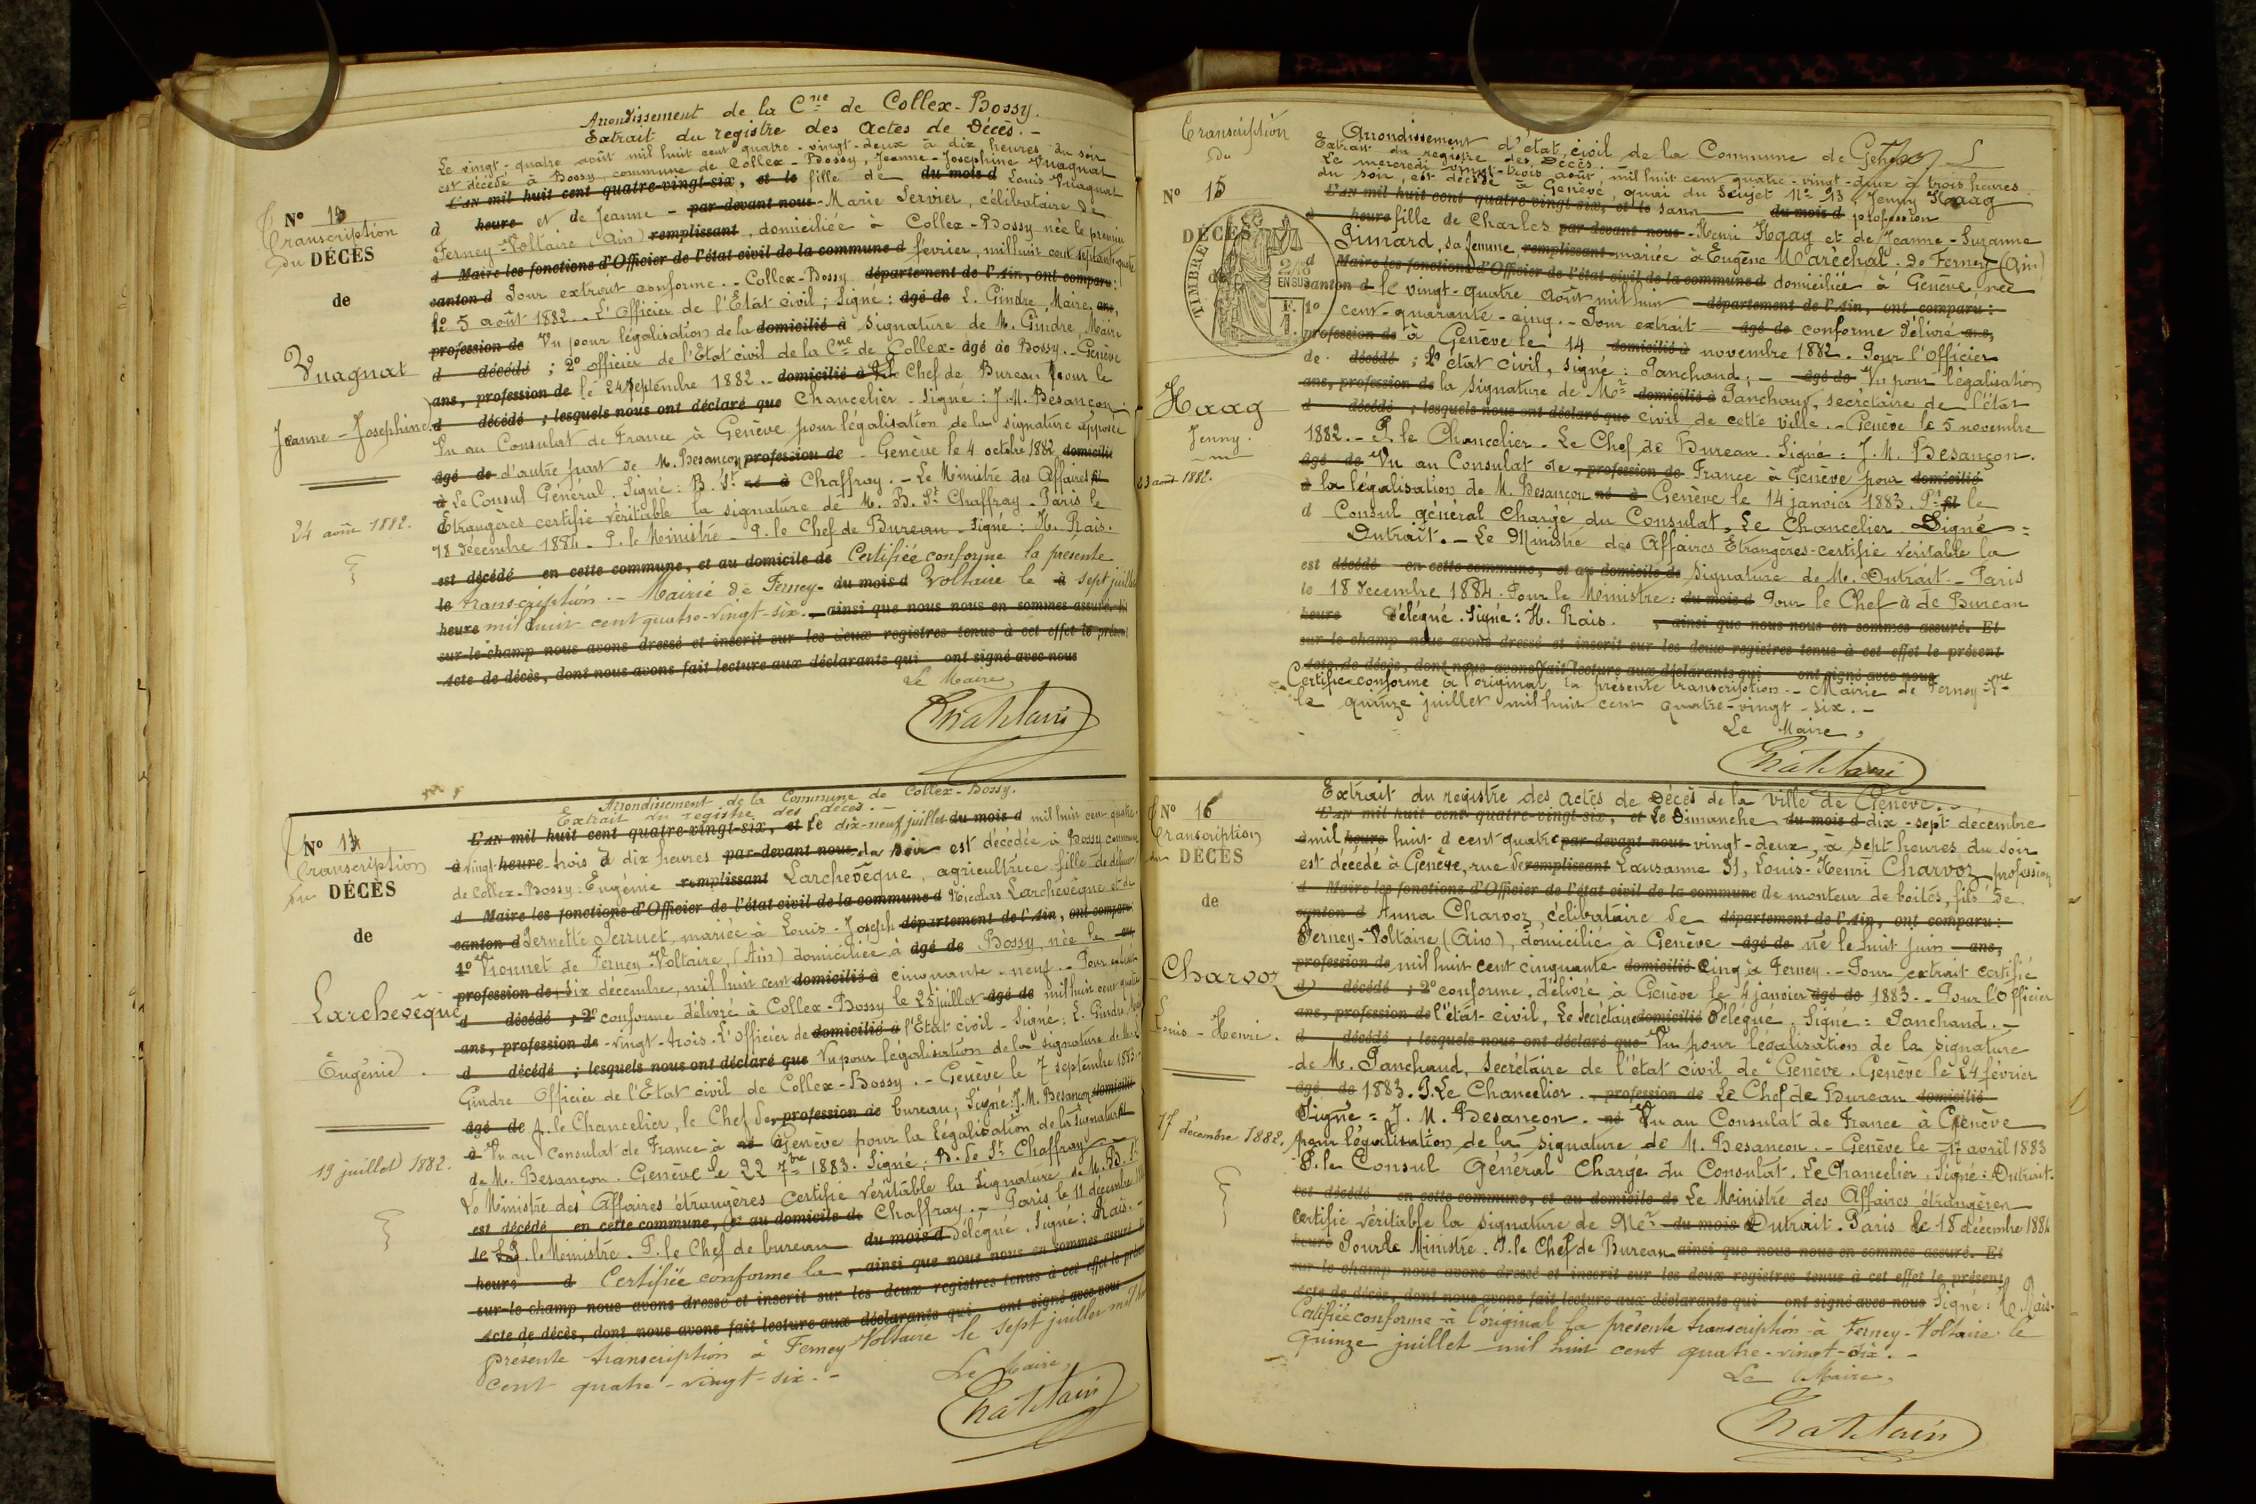 Arrondissement de la Cne de Collex-Bossy.
Extrait du registre des actes de Décès. -
Le vingt-quatre août mil huit cent quatre-vingt-deux à dix heures du soir
est décédé à Bossy, commune de Collex-Bossy, Jeanne-Josephine Vuagnat
L'AN mil huit cent quatre-vingt-six, et le fille de du mois d Louis Vuagnat
à heure et de Jeanne - par-devant nous - Marie Servier, célibataire de
Ferney-Voltaire (Ain) remplissant, domiciliée à Collex-Bossy née le premier
d Maire les fonctions d'Officier de l'état civil de la commune d février, mil huit cent septante quatre
canton d Pour extrait conforme. - Collex-Bossy département de l'Ain, ont comparu:
1º 5 août 1882. - L'Officier de l'Etat civil; Signé: âgé de L. Gindre, Maire, ans,
profession de Vu pour légalisation de la domicilié à signature de M. Gindre, Maire
d décédé ; 2º officier de l'Etat civil de la Cne de Collex- âgé de Bossy. - Genève
ans, profession de le 24 septembre 1882. - domicilié à Le Chef de Bureau pour le
d décédé ; lesquels nous ont déclaré que Chancelier. Signé: J. M. Besançon.
Vu au Consulat de France à Genève pour légalisation de la signature apposée
âgé de d'autre part de M. Besançon profession de - Genève le 4 octobre 1882 domicilié
à Le Consul Général. Signé: B. St né à Chaffray. - Le Ministre des Affaires
Etrangères certifie véritable la signature de M. B. St Chaffray. Paris le
18 décembre 1884. P. le Ministre - P. le Chef de Bureau - Signé: H. Rais.
est décédé en cette commune, et au domicile de Certifiée conforme la présente
le transcription. - Mairie de Ferney- du mois d Voltaire le à sept juillet
heure mil huit cent quatre-vingt-six. - ainsi que nous nous en sommes assuré. Et
sur-le-champ nous avons dressé et inscrit sur les deux registres tenus à cet effet le présent
Acte de décès, dont nous avons fait lecture aux déclarants qui ont signé avec nous
Le Maire,
Nº 13
Transcription
du DÉCÈS
de
Vuagnat
Jeanne-Josephine
24 août 1882.
Arrondissement de la Commune de Collex-Bossy.
Extrait du registre des décès. -
L'AN mil huit cent quatre-vingt-six, et le dix-neuf juillet du mois d mil huit cent quatre-
à vingt heure -trois à dix heures par-devant nous du soir est décédée à Bossy commune
de Collex-Bossy. Eugénie remplissant Larchevêque, agricultrice fille de défunt
d Maire les fonctions d'Officier de l'état civil de la commune d Nicolas Larchevêque et de
canton d Pernette Perruet, mariée à Louis-Joseph département de l'Ain, ont comparu
1º Vionnet de Ferney-Voltaire, (Ain) domiciliée à âgé de Bossy, née le
profession de, dix décembre, mil huit cent domicilié à cinquante-neuf. - Pour extrait
d décédé ; 2º conforme délivré à Collex-Bossy le 25 juillet âgé de mil huit cent quatre
ans, profession de -vingt-trois. L'Officier de domicilié à l'Etat civil - Signé: L. Gindre,
d décédé ; lesquels nous ont déclaré que Vu pour légalisation de la signature de
Gindre Officier de l'Etat civil de Collex-Bossy. - Genève le 7 septembre 1883.
âgé de p. le Chancelier, le Chef de, profession de bureau; Signé: J. M. Besançon domicilié
à Vu au Consulat de France à né à Genève pour la légalisation de la signature
de M. Besançon. Genève le 22 7bre 1883. Signé: B. de St Chaffray
Le Ministre des Affaires étrangères certifie véritable la signature de M. B. St
est décédé en cette commune, et au domicile de Chaffray. - Paris le 11 décembre
le P. le Ministre. P. le Chef de bureau du mois d Délégué. Signé: Rais. -
heure d Certifiée conforme la , ainsi que nous nous en sommes assuré
sur-le-champ nous avons dressé et inscrit sur les deux registres tenus à cet effet le présent
Acte de décès, dont nous avons fait lecture aux déclarants qui ont signé avec nous
présente transcription à Ferney-Voltaire le sept juillet mil huit
cent quatre-vingt-six. -
Le Maire,
Nº 14
Transcription
du DÉCÈS
de
Larchevêque
Eugénie.
19 juillet 1882.
Arrondissement d'état civil de la Commune de Genève
Extrait du registre des Décès.
Le mercredi vingt-trois août, mil huit cent quatre-vingt-deux à trois heures
du soir, est décédée à Genève quai du Seujet Nº 13, Jenny Haag
L'AN mil huit cent quatre-vingt-six, et le sans du mois d profession
à heure fille de Charles par-devant nous - Henri Haag et de Jeanne-Suzanne
Simard, sa femme, remplissant mariée à Eugène Maréchal. De Ferney (Ain)
d Maire les fonctions d'Officier de l'état civil de la commune d domiciliée à Genève née
canton d le vingt-quatre août mil huit département de l'Ain, ont comparu:
1º cent-quarante-cinq. - Pour extrait âgé de conforme délivré ans,
profession de à Genève le 14 domicilié à novembre 1882. Pour l'Officier
de décédé ; 2º état civil, signé: Panchaud; - âgé de Vu pour légalisation
ans, profession de la signature de Mr domicilié à Panchaud, secrétaire de l'état
d décédé ; lesquels nous ont déclaré que civil de cette ville. - Genève le 5 novembre
1882. - P. le Chancelier. Le Chef de Bureau. Signé: J. M. Besançon.
âgé de Vu au Consulat de , profession de France à Genève pour domicilié
à la légalisation de M. Besançon né à Genève le 14 janvier 1883. Pr le
d Consul général Chargé du Consulat, Le Chancelier Signé =
Dutrait. - Le Ministre des Affaires Etrangères certifie véritable la
est décédé en cette commune, et au domicile de signature de M. Dutrait. - Paris
le 18 décembre 1884. Pour le Ministre: du mois d Pour le Chef à de Bureau
heure délégué. Signé: H. Rais. , ainsi que nous nous en sommes assuré. Et
sur-le-champ nous avons dressé et inscrit sur les deux registres tenus à cet effet le présent
Acte de décès, dont nous avons fait lecture aux déclarants qui ont signé avec nous
Certifiée conforme à l'original la présente transcription. - Mairie de Ferney-Vre
le quinze juillet mil huit cent quatre-vingt-six. -
Le Maire,
Transcription
du
Nº 15
DÉCÈS
de
TIMBRE
2/10
EN SUS
Haag
Jenny.
23 août 1882.
Extrait du registre des actes de Décès de la ville de Genève. -
L'AN mil huit cent quatre-vingt-six, et Le Dimanche du mois d dix-sept décembre
à mil heure huit d cent quatre par-devant nous vingt-deux, à sept heures du soir
est décédé à Genève, rue de remplissant Lausanne 31, Louis-Henri Charvoz profession
d Maire les fonctions d'Officier de l'état civil de la commune de monteur de boîtes, fils de
canton d Anna Charvoz, célibataire de département de l'Ain, ont comparu:
Ferney-Voltaire (Ain), domicilié à Genève âgé de né le huit juin ans,
profession de mil huit cent cinquante domicilié cinq à Ferney. - Pour extrait certifié
d décédé ; 2º conforme, délivré à Genève le 4 janvier âgé de 1883. - Pour l'Officier
ans, profession de l'état-civil, Le Secrétaire domicilié Délégué, Signé: Panchaud. -
d décédé ; lesquels nous ont déclaré que Vu pour légalisation de la signature
de M. Panchaud, Secrétaire de l'état civil de Genève. Genève le 24 février
âgé de 1883. P. Le Chancelier. , profession de Le Chef de Bureau domicilié
Signé = J. M. Besançon. né Vu au Consulat de France à Genève
pour légalisation de la signature de M. Besançon. - Genève le 17 avril 1883
P. le Consul Général Chargé du Consulat. Le Chancelier. Signé: Dutrait.
est décédé en cette commune, et au domicile de Le Ministre des Affaires étrangères
certifie véritable la signature de Mr du mois Dutrait. Paris le 18 décembre 1884
heure Pour le Ministre. P. le Chef de Bureau ainsi que nous nous en sommes assuré. Et
sur-le-champ nous avons dressé et inscrit sur les deux registres tenus à cet effet le présent
Acte de décès, dont nous avons fait lecture aux déclarants qui ont signé avec nous Signé: H. Rais.
Certifiée conforme à l'original la présente transcription à Ferney-Voltaire le
quinze juillet mil huit cent quatre-vingt-six. -
Le Maire,
Nº 16
Transcription
du DÉCÈS
de
Charvoz
Louis-Henri.
17 décembre 1882.